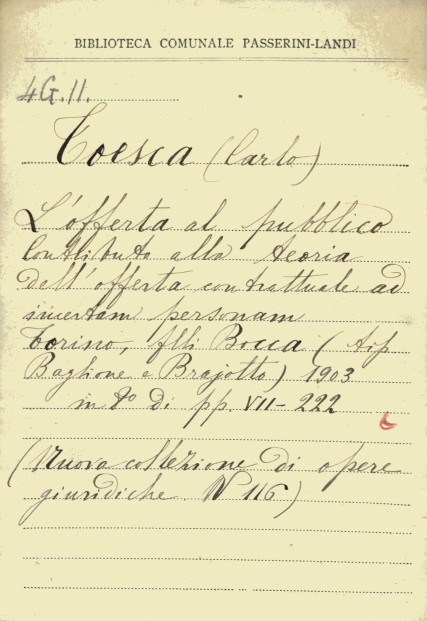 BIBLIOTECA COMUNALE PASSERINI-LANDI
4G.11.
Toesca (Carlo)
L'offerta al pubblico
Contributo alla teoria
dell'offerta contrattuale ad
incertam personam
Torino, flli Bocca (tip
Baglione e Brajotto) 1903
in 8º di pp. VII-222
(Nuova collezione di opere
giuridiche. N 116)